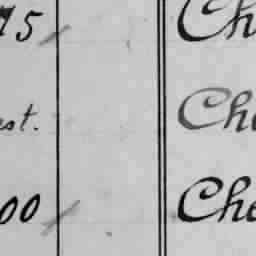 75 Ch
est. Che
00 Che